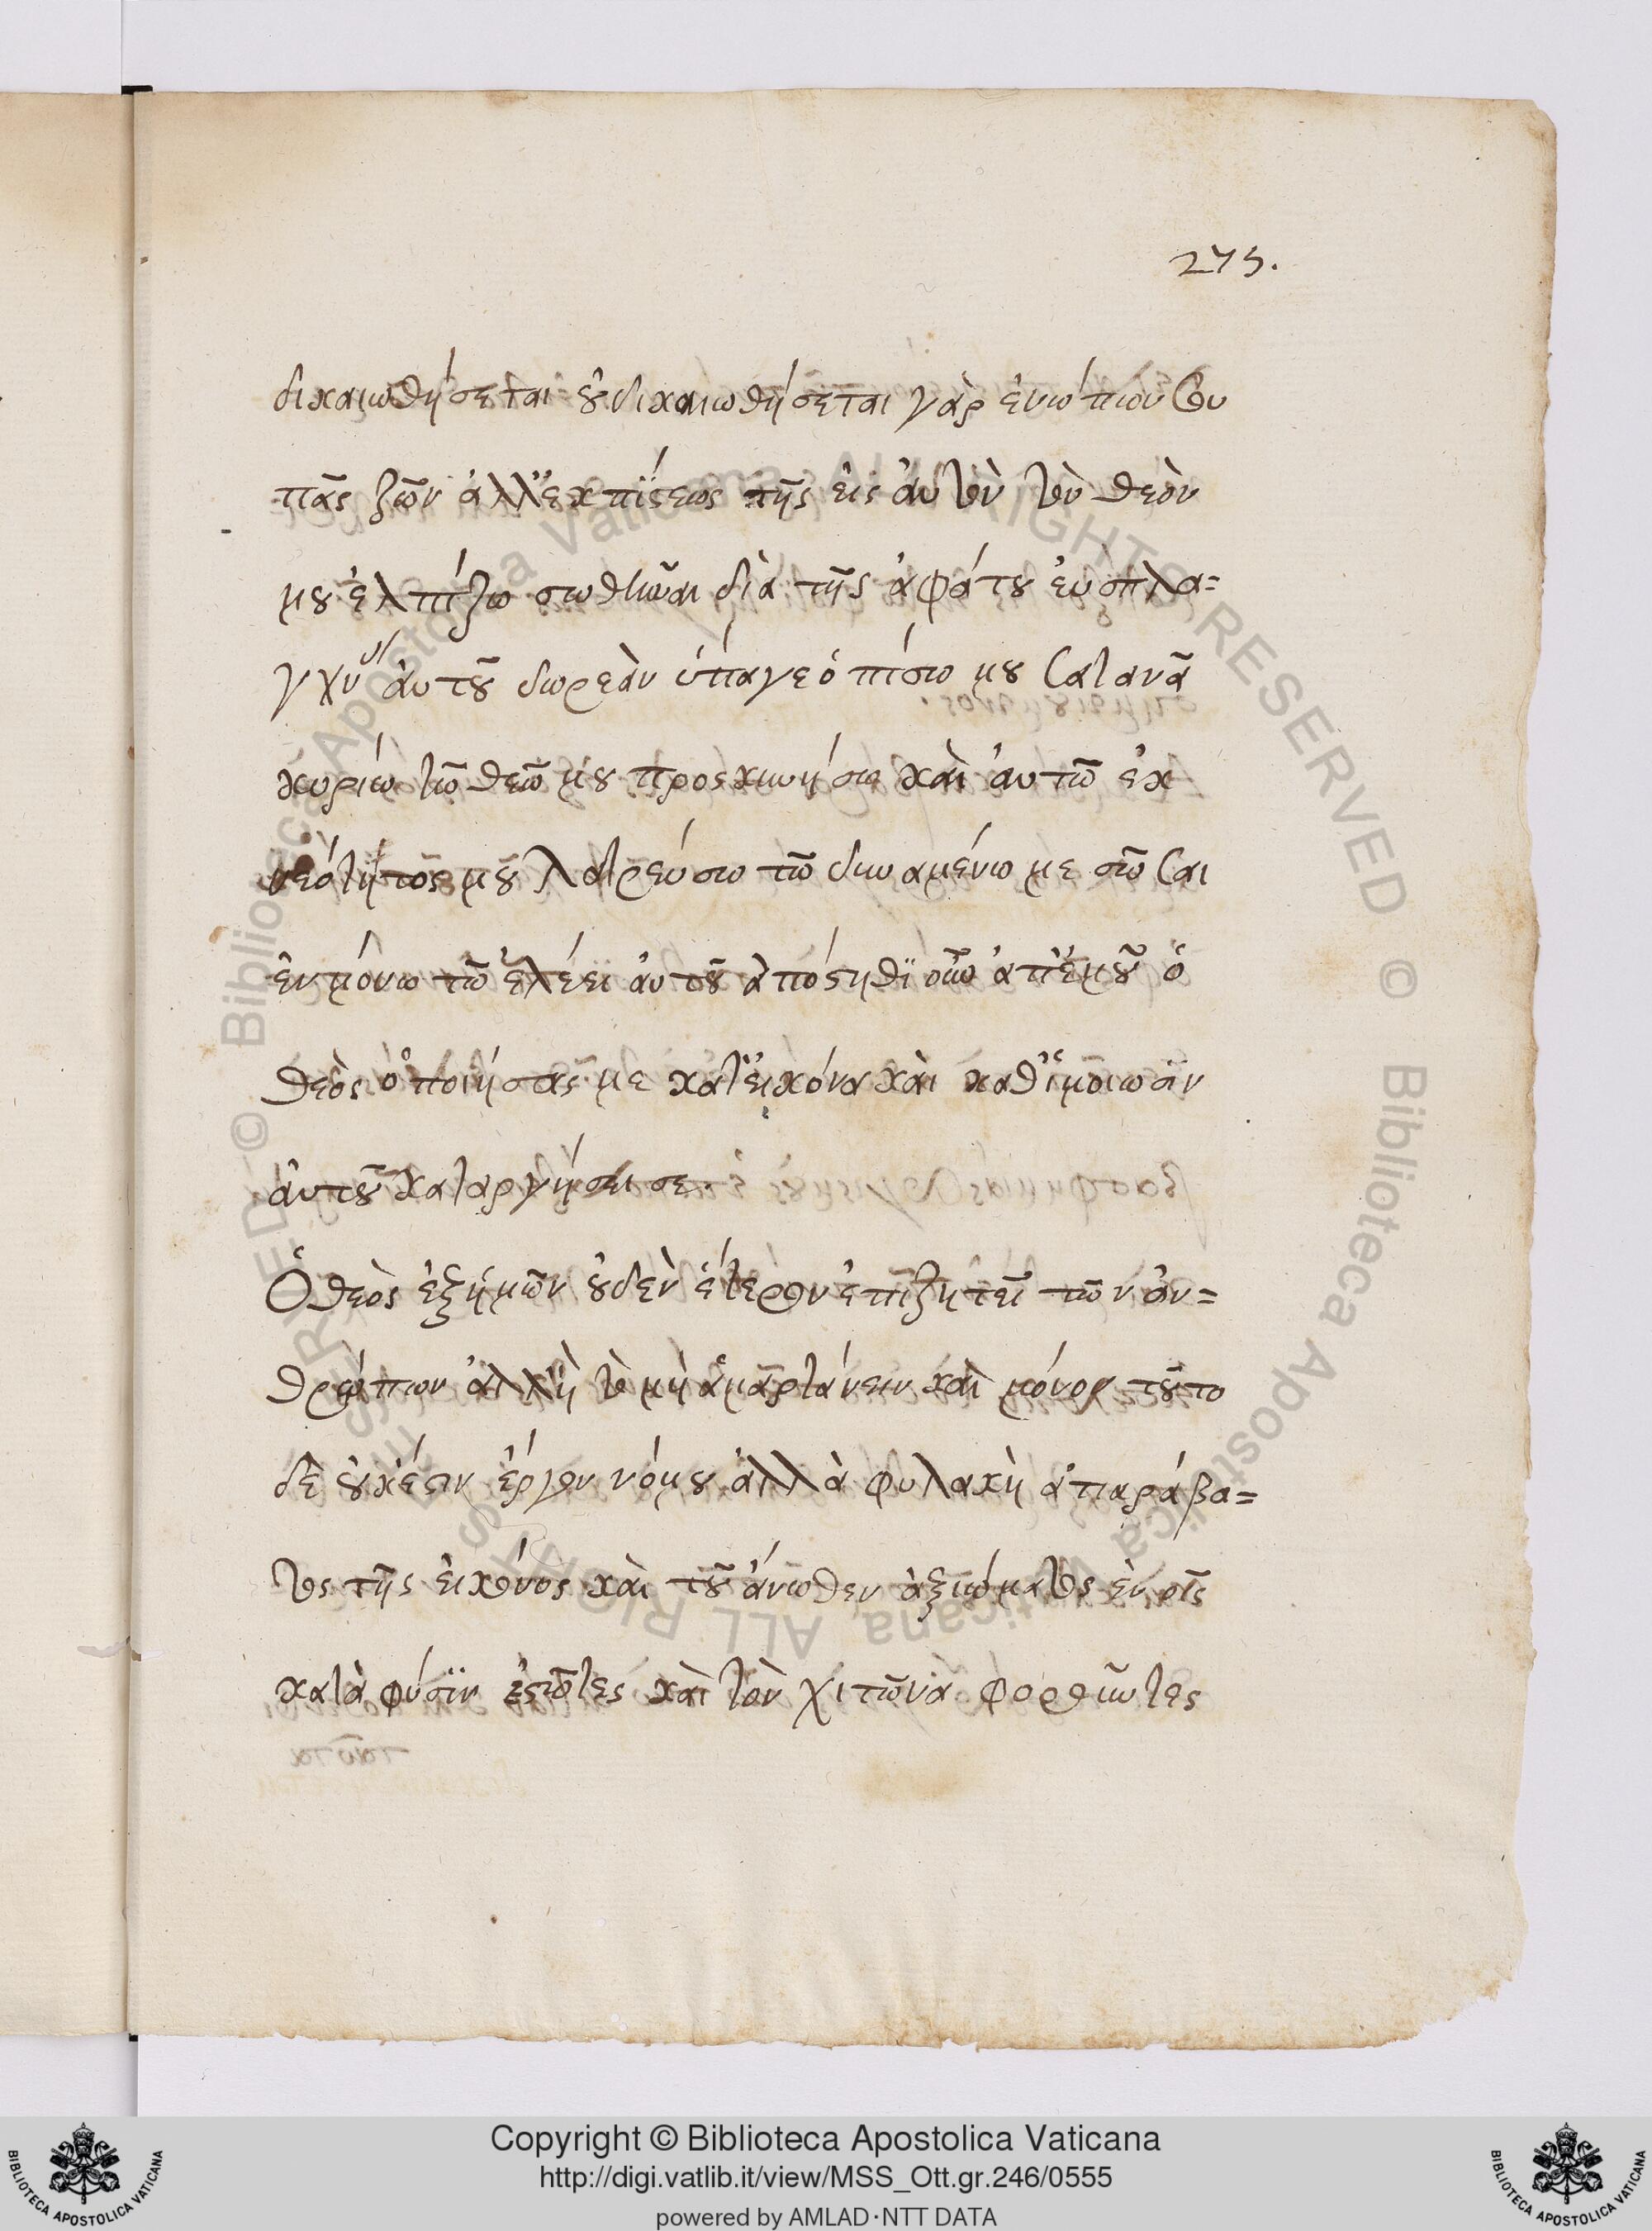 275.
δικαιωθήσεται οὐ δικαιωθήσεται γὰρ ἐνώπιον σου
πᾶς ζῶν ἀλλ' ἐκ πίστεως τῆς εἰς αὐτὸν τὸν θεὸν
μου ἐλπίζω σωθῆναι διὰ τῆς ἀφάτου εὐσπλα=
γχν αὐτοῦ δωρεὰν ὑπαγε ὀπίσω μου Σατανᾶ
κυρίω τῶ θεῶ μου προσκυνήσω καὶ αὐτῶ ἐκ
νεότητος μου λατρεύσω τῶ δυναμένω με σῶσαι
ἐν μόνω τῶ ἐλέει αὐτοῦ ἀπόστηθι οὖν ἀπ' ἐμοῦ ὁ
θεὸς ὁ ποιήσας με κατ' εἰκόνα καὶ καθ' ὁμοίωσιν
αὐτοῦ καταργήσει σε.
Ὁ θεὸς ἐξ ἡμῶν οὐδὲν ἕτερον ἐπιζητεῖ τῶν ἀν=
θρώπων ἀλλ' ἢ τὸ μὴ ἁμαρτάνειν καὶ μόνον τοῦτο
δὲ οὐκ ἔστιν ἔργον νόμου ἀλλὰ φυλακὴ ἀπαράβα=
τος τῆς εἰκόνος καὶ τοῦ ἄνωθεν ἀξιώματος ἐν οἷς
κατὰ φύσιν ἑστῶτες καὶ τὸν χιτῶνα φοροῦντες
Copyright © Biblioteca Apostolica Vaticana
http://digi.vatlib.it/view/MSS_Ott.gr.246/0555
powered by AMLAD·NTT DATA
BIBLIOTECA APOSTOLICA VATICANA
BIBLIOTECA APOSTOLICA VATICANA